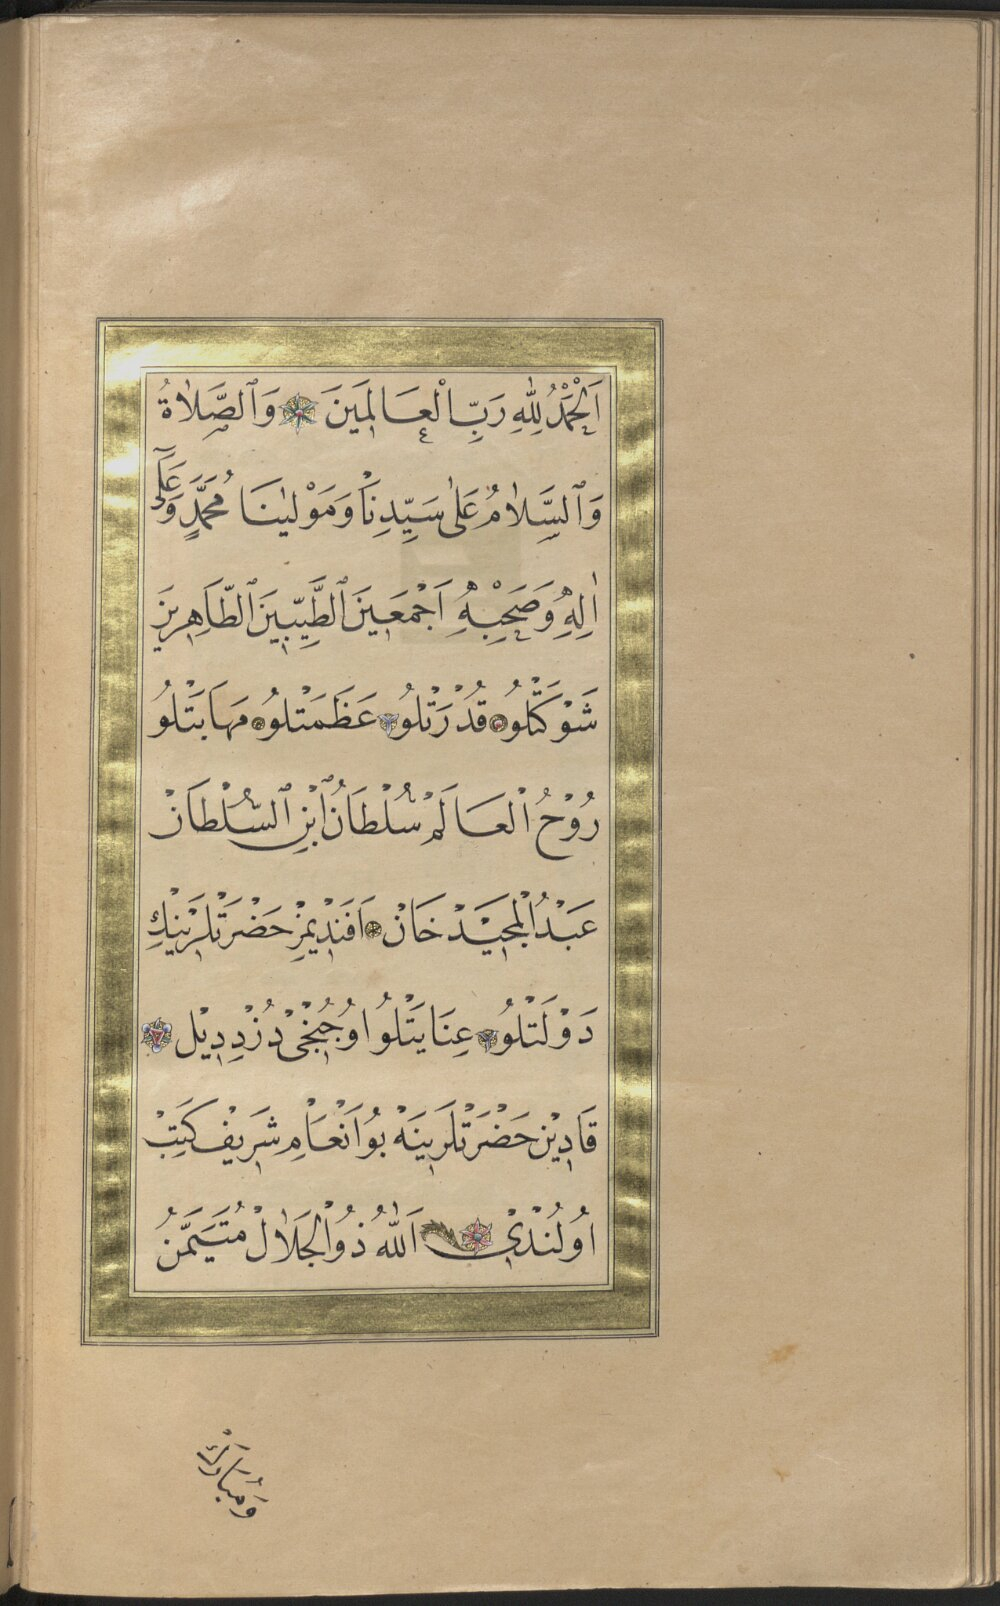 اَلْحَمْدُ لِلّٰهِ رَبِّ الْعَالَمِينَ وَالصَّلَاةُ
وَالسَّلَامُ عَلٰى سَيِّدِنَا وَمَوْلٰينَا مُحَمَّدٍ وَعَلٰٓى
اٰلِهِ وَصَحْبِهِ اَجْمَعِينَ الطَّيِّبِينَ الطَّاهِرِينَ
شَوْكَتْلُو قُدْرَتْلُو عَظَمَتْلُو مَهَابَتْلُو
رُوْحُ الْعَالَمْ سُلْطَانُ ابْنِ السُّلْطَانْ
عَبْدُ الْمَجِيْدْ خَانْ اَفَنْدِيمِزْ حَضْرَتْلَرِيْنِڭ
دَوْلَتْلُو عِنَايَتْلُو اوُچُنْجِى دُزْدِدِيْل
قَادِيْن حَضْرَتْلَرِينَهْ بُو اَنْعَامِ شَرِيفْ كَتِبْ
اوُلُنْدِيْ اَللّٰهُ ذُو الْجَلَالْ مُتَيَمِّنُ
وَمُبَارَكْ